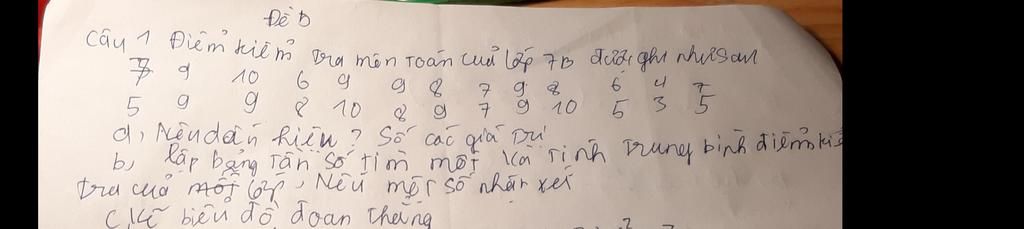 Đề D
Câu 1 Điểm kiểm tra môn Toán của lớp 7B được ghi như sau
7 9 10 6 9 9 8 7 9 8 6 4 7
5 9 9 8 10 8 9 7 9 10 5 3 5
a, Nêu dấu hiệu? Số các giá trị
b, lập bảng tần số tìm mốt và tính trung bình điểm kiể
tra của lớp, Nêu một số nhận xét
C, Vẽ biểu đồ đoạn thẳng